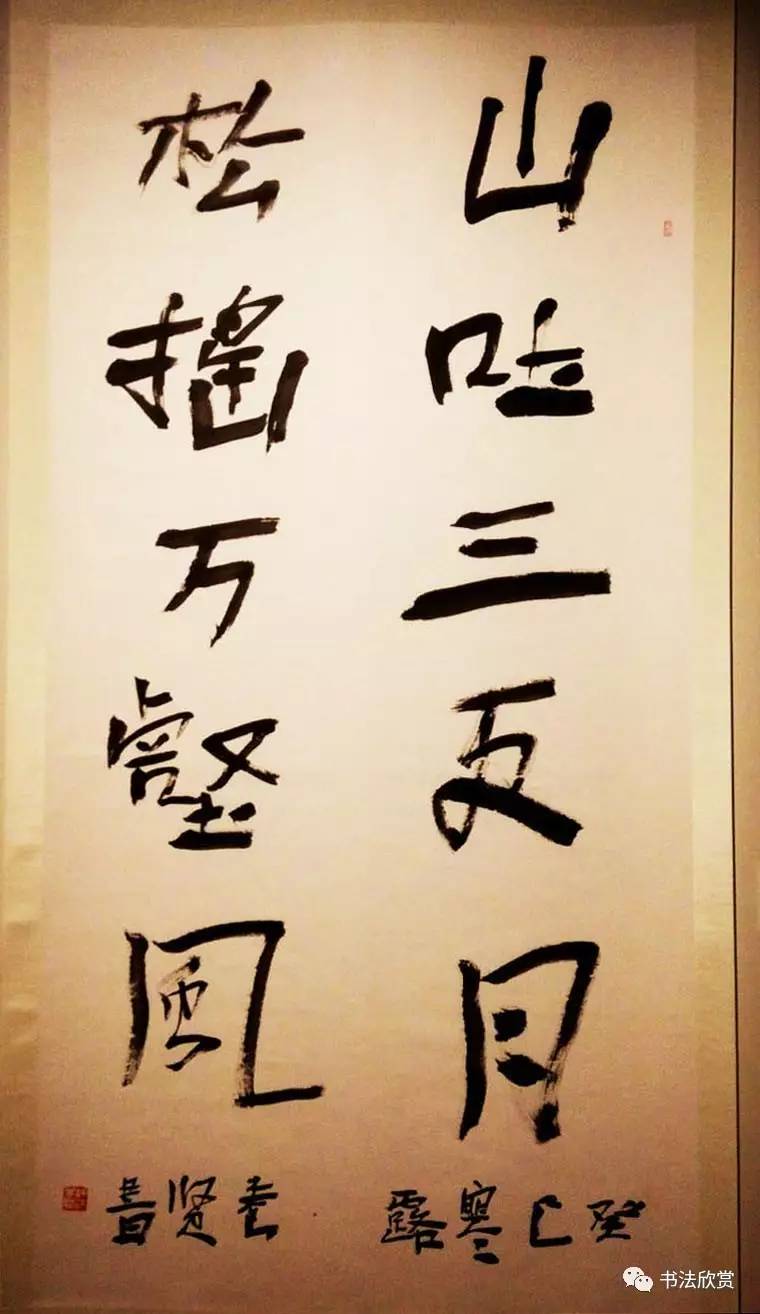 山吐三更月
松搖万壑風
癸巳寒露
贤書
书法欣赏